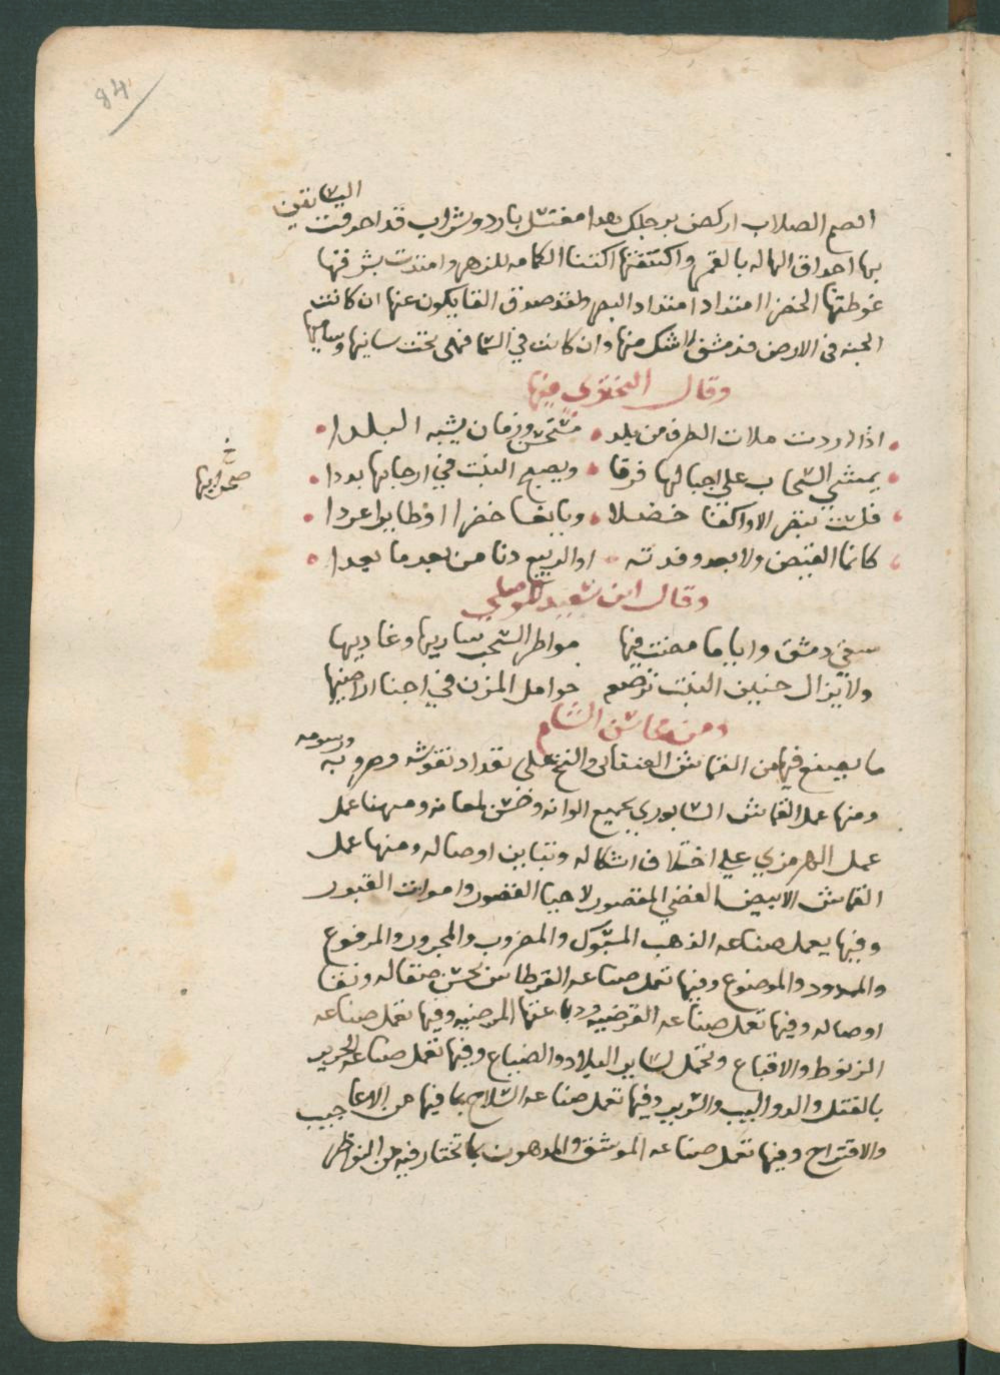 84
الصم الصلاب اركض برجلك هذا مغتسل بارد وشراب قد احدقت البساتين
بها احداق الهاله بالقمر واكتنفتها اكتناف الكمامه للزهر وامتدت بشرقيها
غوطتها الخضرا امتداد امتداد البصر ولقد صدق القايكون عنها ان كانت
الجنه في الارض فدمشق لا شك منها وان كانت في السما فهي تحت
وقال البحتري فيها
اذا اردت ملات الطرف من بلد • مستحسن وزمان يشبه البلدا •
يمشي السحاب علي اجبالها فرقا • ويصبح النبت في ارجايها بددا •
خ صحرايها
فلست تبصر الا واكفا خضلا • ويانعا خضرا او طايرا غردا •
كانما القيض ولا بعد وفدته • او الربيع دنا من بعد ما بعدا •
وقال ابن سعيد الموصلي
سقي دمشق واياما مضت فيها مواطر السحب ساريها وغاديها
ولا يزال جنين النبت ترضعه حوامل المزن في احنا اراضيها
ومن محاسن الشام
ما يصنع فيها من القماش والنخ علي تعداد نقوشه وضروبه ورسومه
ومنها عمل القماش السابوري بجميع الوانه وحسن لمعانه ومنها عمل
عمل الهرمزي علي اختلاف اشكاله وتباين اوصاله ومنها عمل
القماش الابيض القضي المقصور لاحيا القصور واموات القبور
وفيها يعمل صناعه الذهب المسبوك والمضروب والمجرور والمرفوع
والممدود والموضوع وفيها تعمل صناعه القرطاس بحسن صقاله ونقا
اوصاله وفيها تعمل صناعه القرضيه ودباغتها المرضيه وفيها تعمل صناعه
الزنوط والاقباع وتحمل لساير البلاد والضياع وفيها تعمل صناعه الحرير
بالفتل والدواليب والسرير وفيها تعمل صناعه السلاح بما فيها من الاعاجيب
والاقتراح وفيها تعمل صناعه الموشق والمدهون بما تختار فيه من النواظر